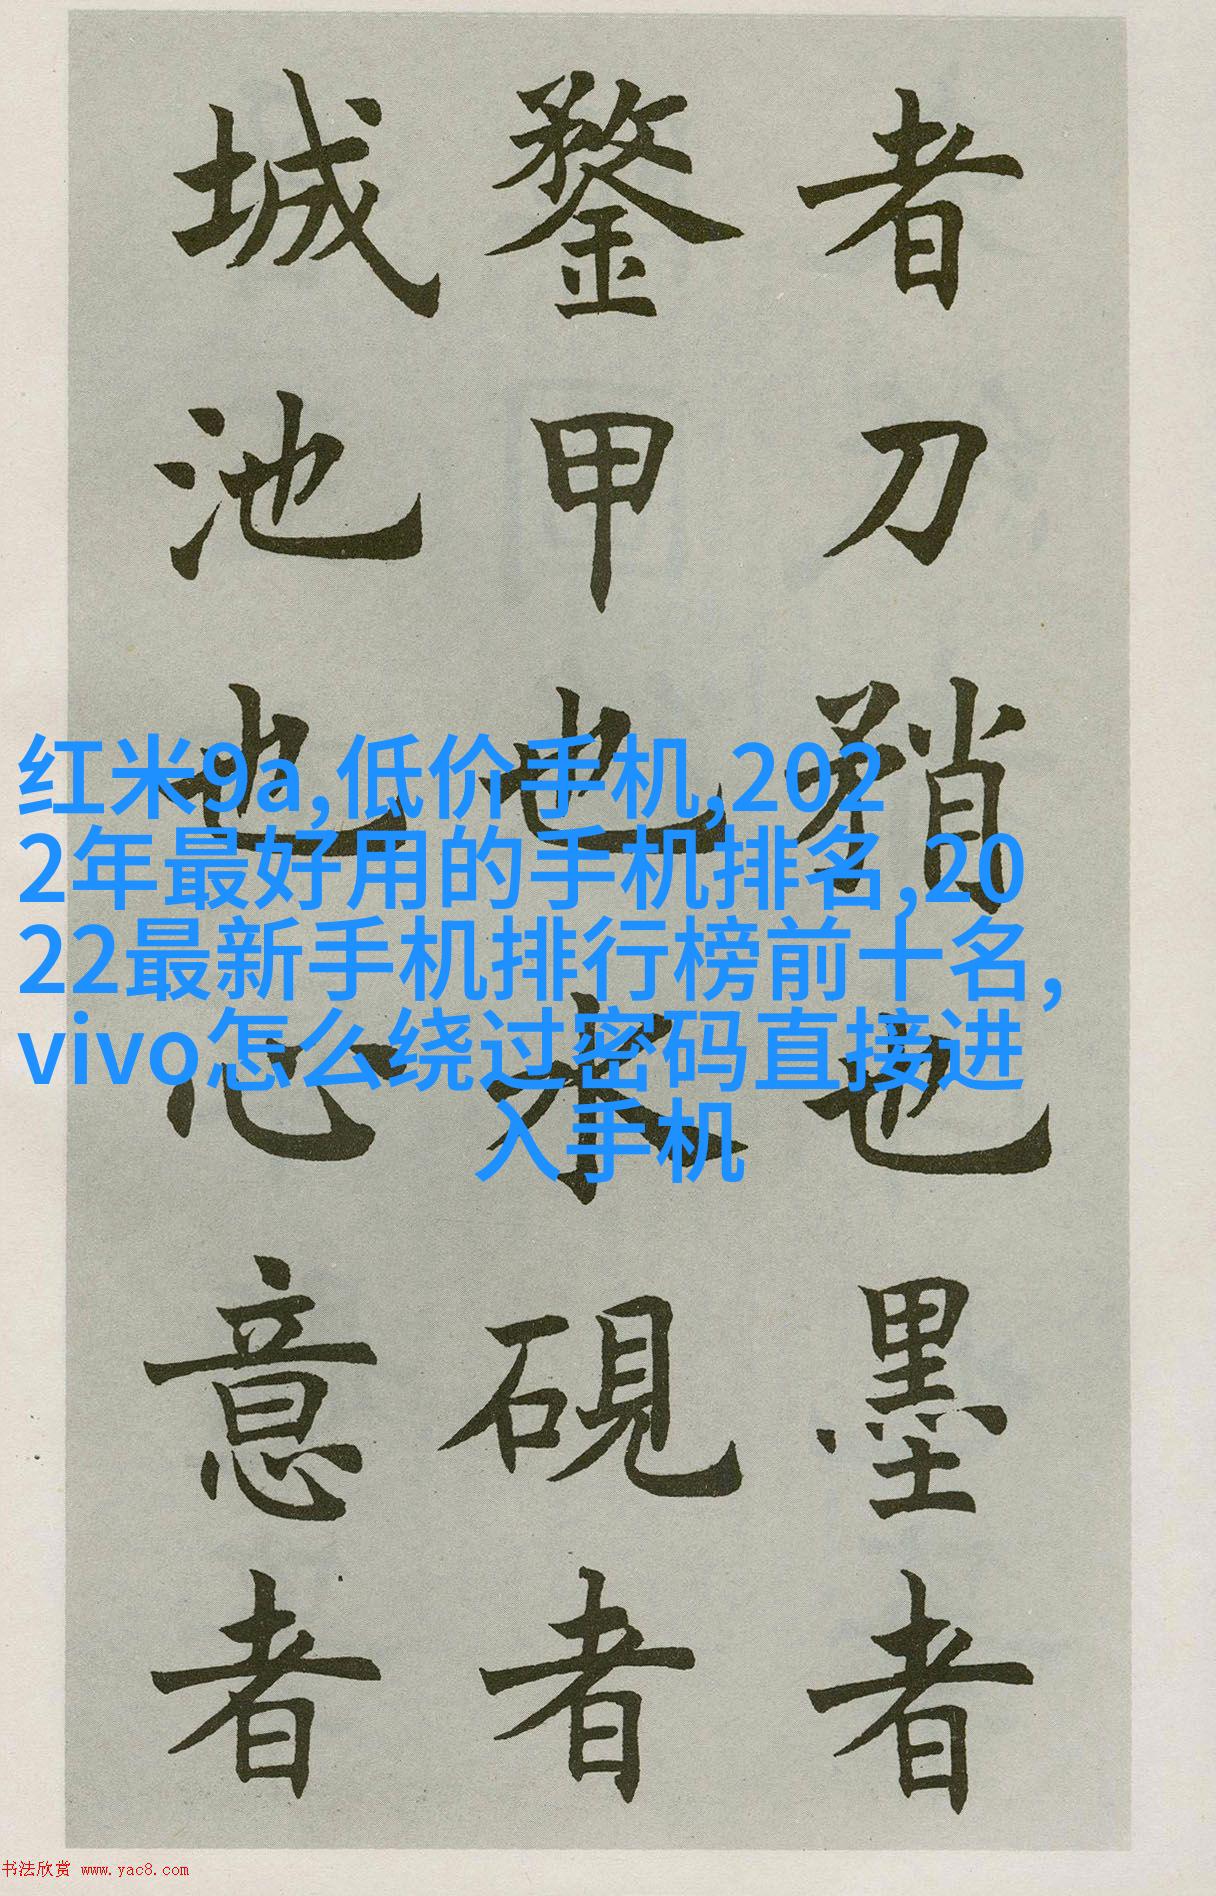 者刀矟也墨者
鍪甲也水硯者
城池也心意者
红米9a,低价手机,202
2年最好用的手机排名,20
22最新手机排行榜前十名,
vivo怎么绕过密码直接进
入手机
书法欣赏 www.yac8.com